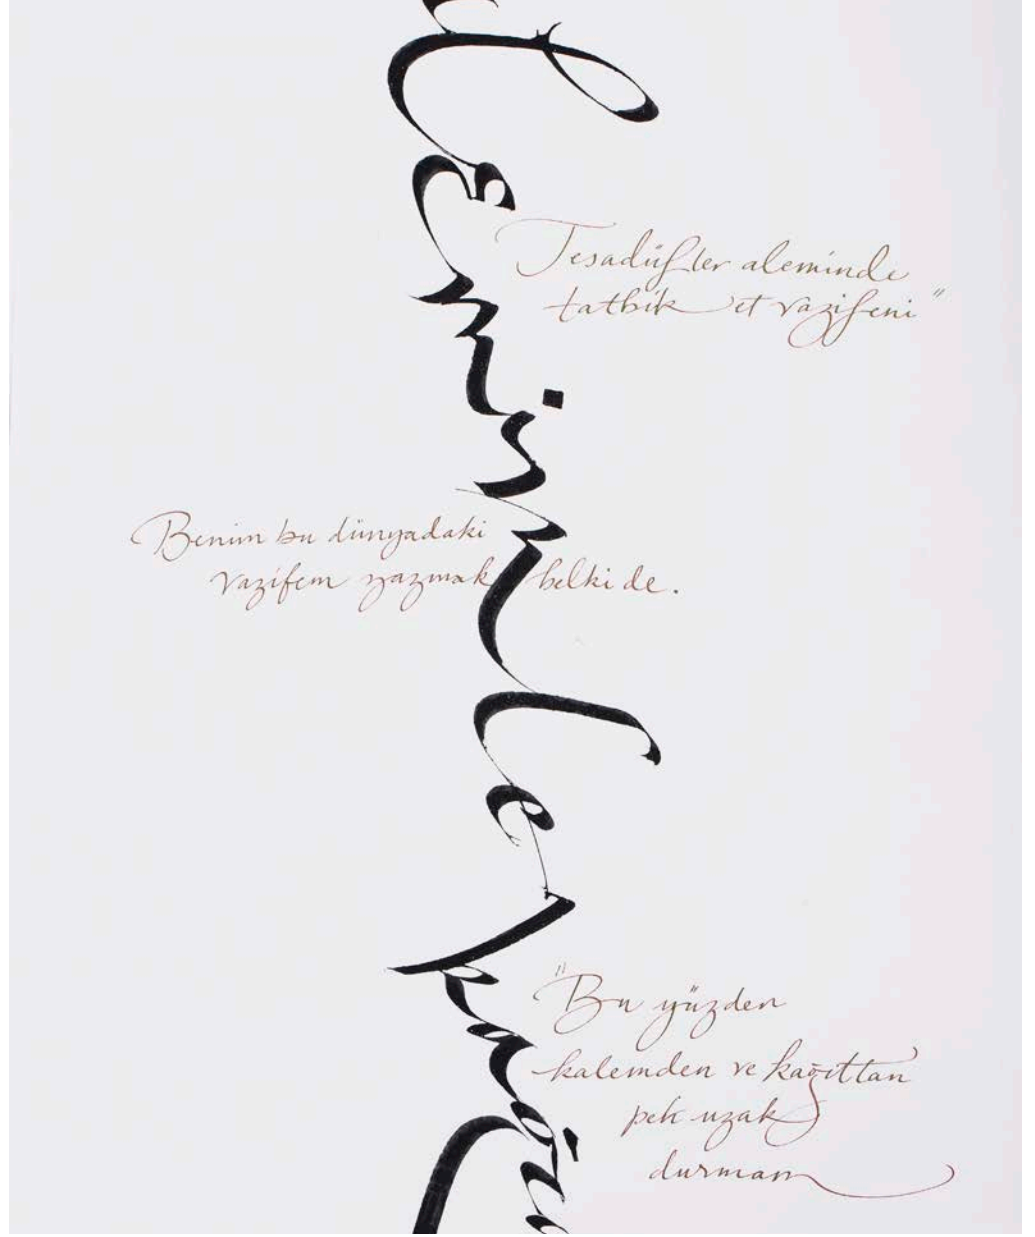 Tesadüfler aleminde
tatbik et vazifeni"
Benim bu dünyadaki
vazifem yazmak belki de.
"Bu yüzden
kalemden ve kağıttan
pek uzak
durmam